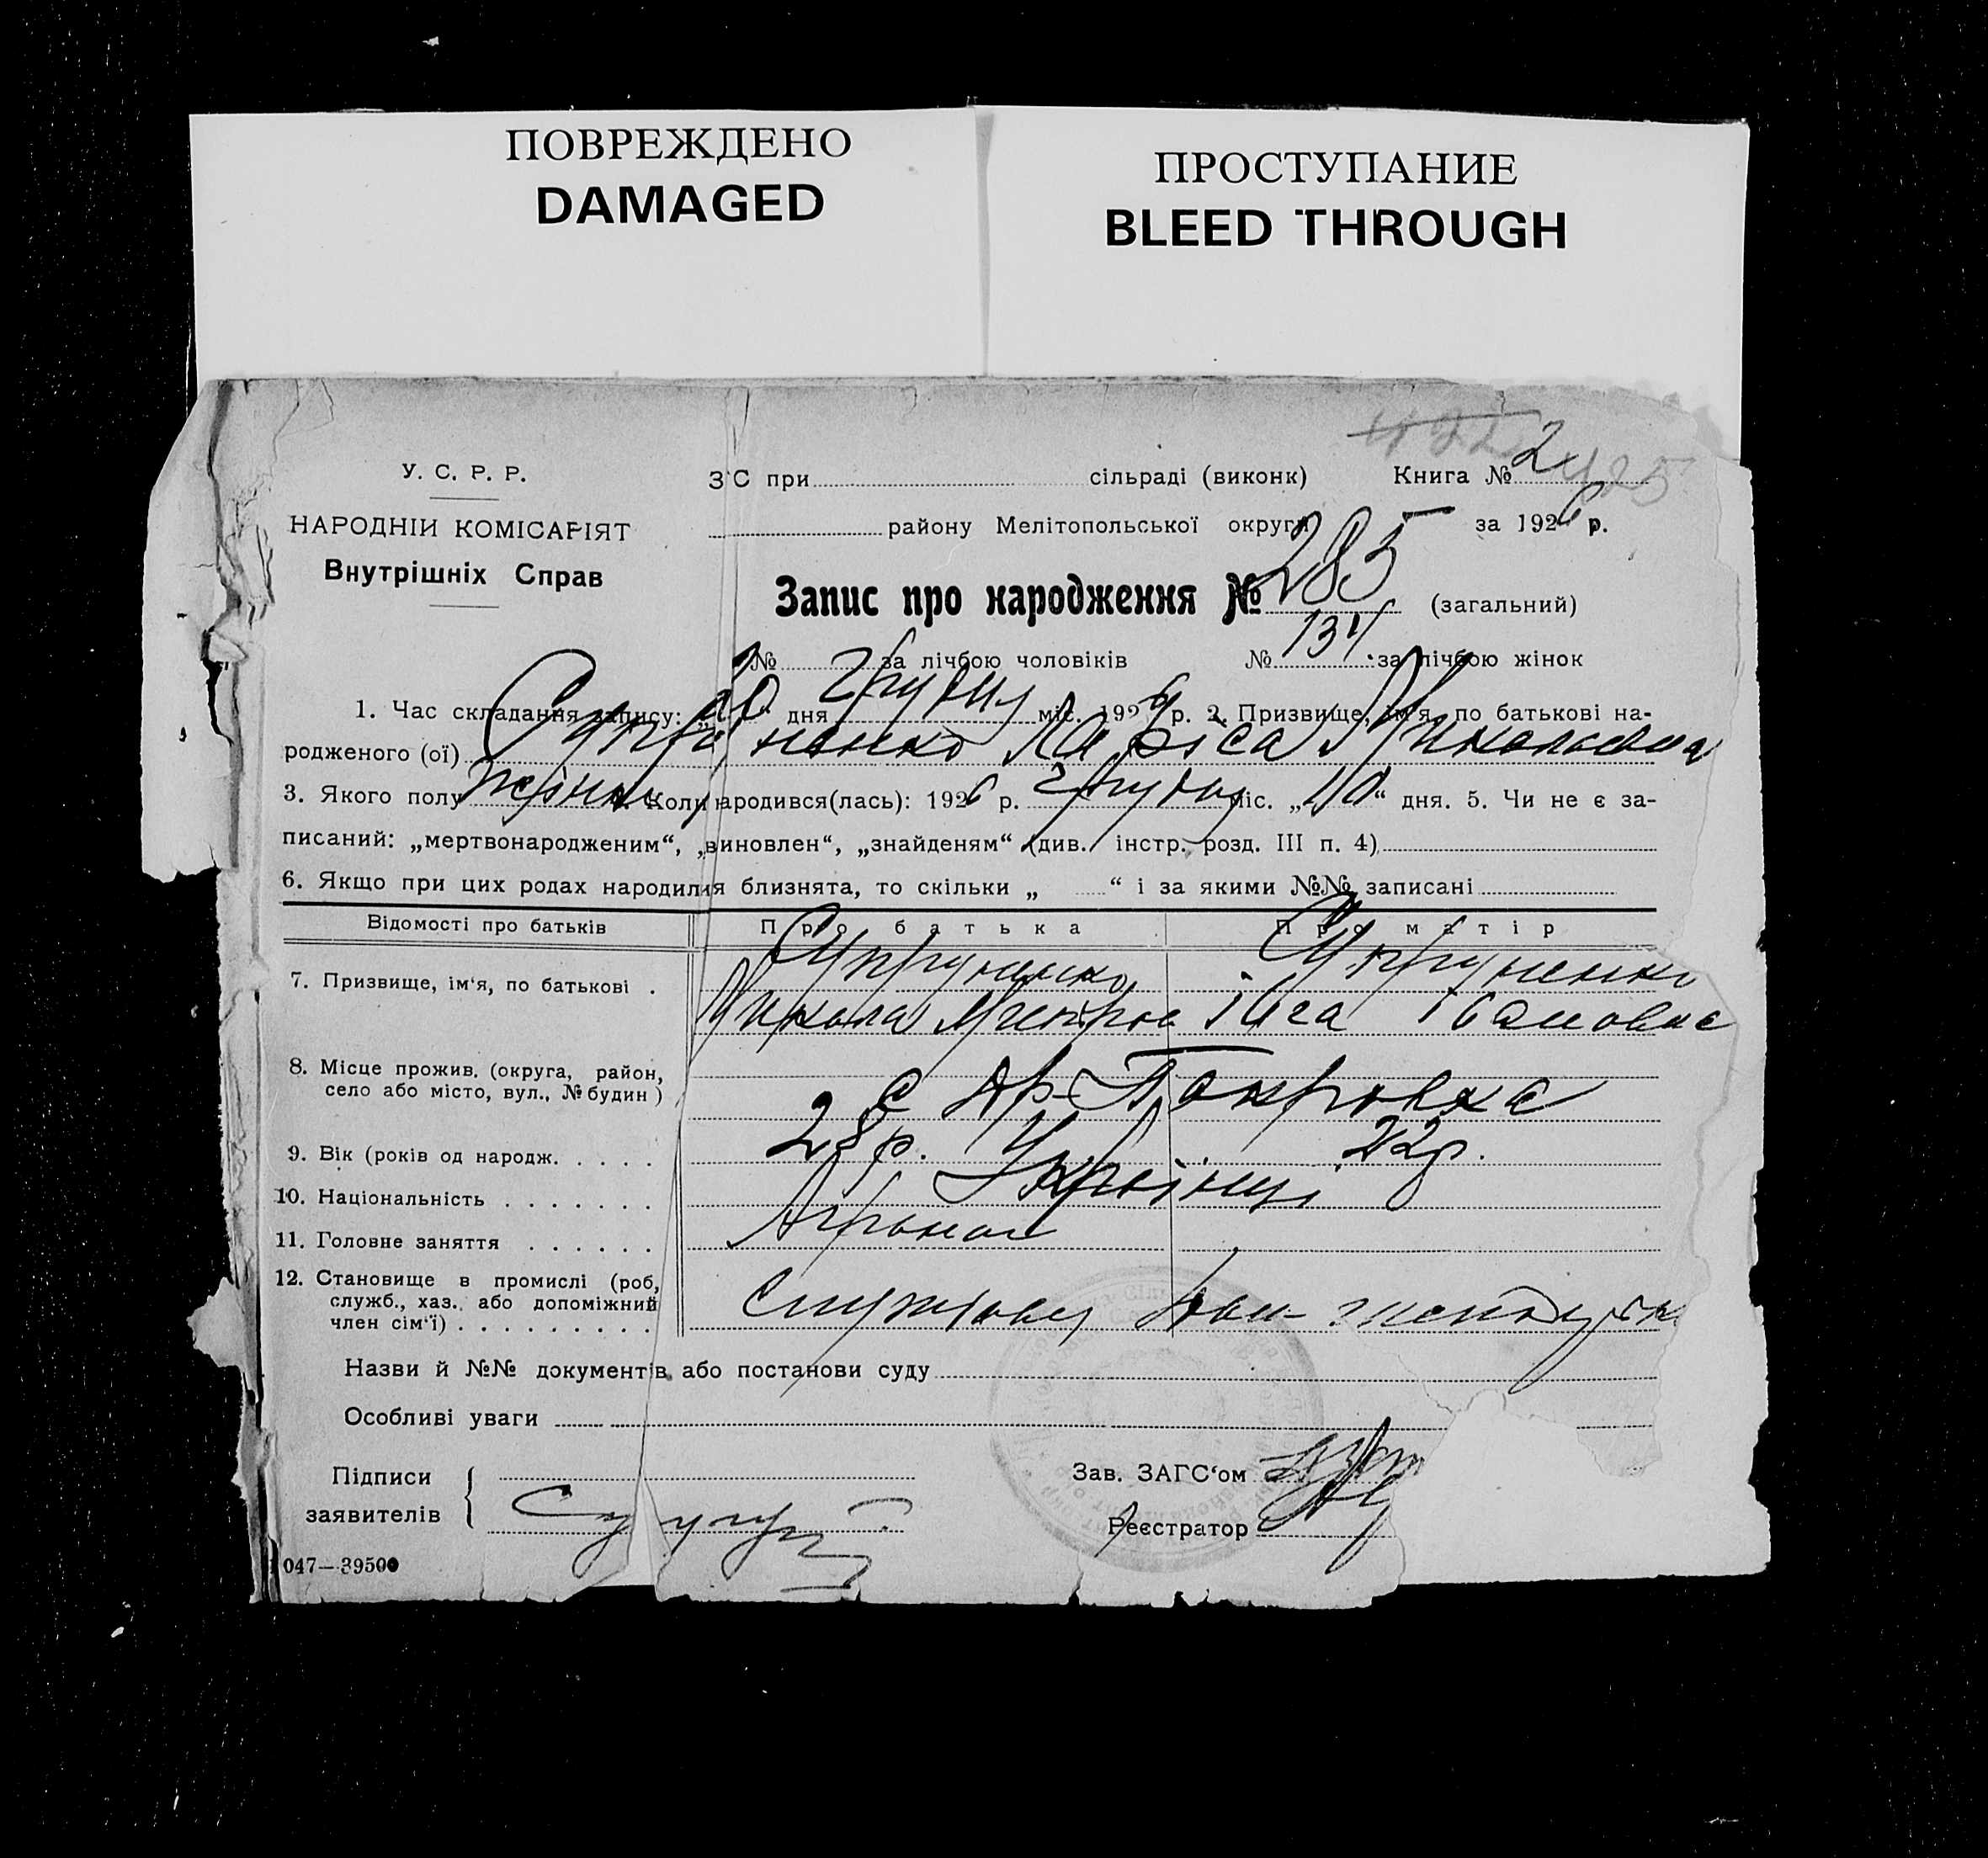 ПОВРЕЖДЕНО
DAMAGED
ПРОСТУПАНИЕ
BLEED THROUGH
У. С. Р. Р.
НАРОДНІИ КОМІСАРІЯТ
Внутрішніх Справ
ЗС при сільраді (виконк) Книга № 2
425
району Мелітопольської округи за 1926 р.
Запис про народження № 285 (загальний)
№ за лічбою чоловіків № 131 за лічбою жінок
1. Час складання запису: „20“ дня грудня міс. 1926 р. 2. Призвище, ім'я, по батькові на-
родженого (ої) Супруненко Лариса Миколаевна
3. Якого полу жіноч. Коли народився(лась): 1926 р. грудня міс. „10“ дня. 5. Чи не є за-
писаний: „мертвонародженим“, „виновлен“, „знайденям“ (див. інстр. розд. III п. 4)
6. Якщо при цих родах народилия близнята, то скільки „ “ і за якими №№ записані
Відомості про батьків Про батька Про матір
7. Призвище, ім'я, по батькові . Супруненко Супруненко
Микола Митроф Івановна
8. Місце прожив. (округа, район,
село або місто, вул., № будин) с Покровка
9. Вік (років од народж. . . . . 28 р. 22 р.
10. Національність . . . . . . . Українці
11. Головне заняття . . . . . . Агроном
12. Становище в промислі (роб,
служб., хаз. або допоміжний
член сім'ї) . . . . . . . . .
Назви й №№ документів або постанови суду
Особливі уваги
Підписи
заявителів
Зав. ЗАГС'ом
Реєстратор
047—39500